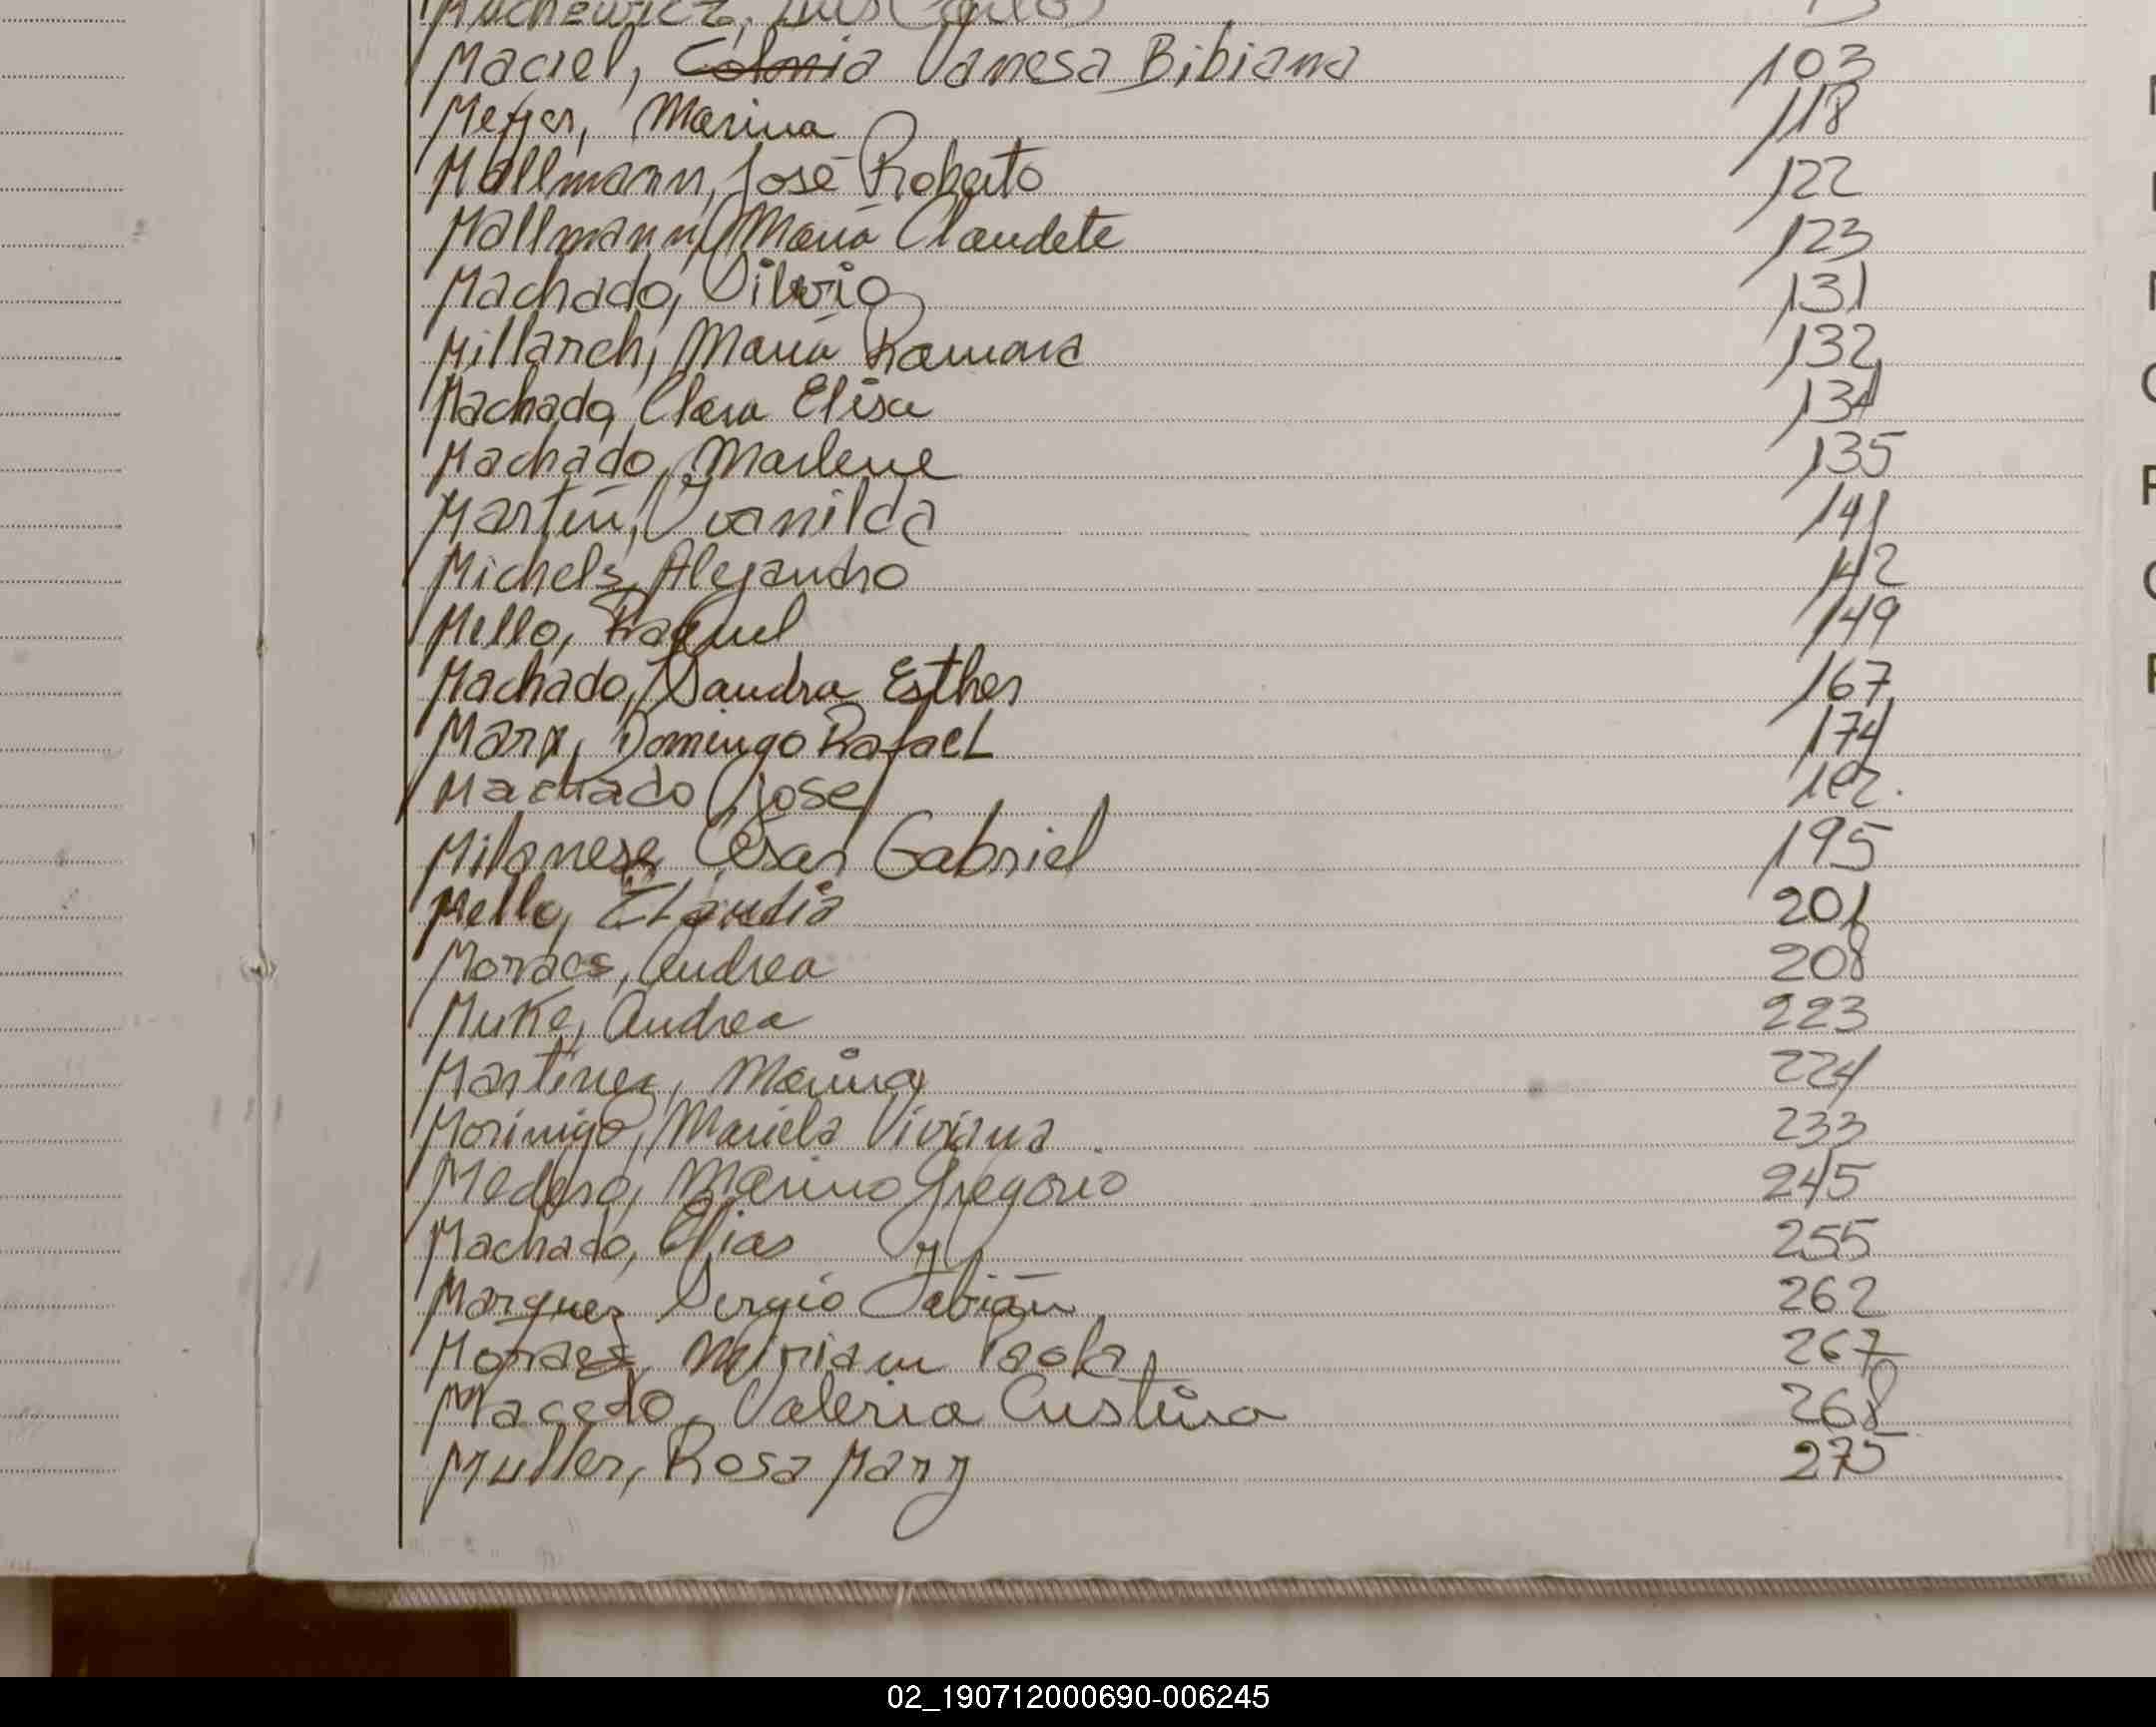 Luis Carlos
Maciel, Colonia Vanesa Bibiana 103
Meyer, Marina 118
Mallmann, José Roberto 122
Mallmann, María Claudete 123
Machado, Silvio 131
Millarch, María Ramona 132
Machado, Clara Elisa 134
Machado, Marlene 135
Martin, Ivanilda 141
Michels, Alejandro 142
Mello, Raquel 149
Machado, Sandra Esther 167
Marx, Domingo Rafael 174
Machado José 182.
Milanese, César Gabriel 195
Mello, Claudia 201
Moraes, Andrea 208
Muke, Andrea 223
Martinez, Marina 224
Morinigo, Mariela Viviana 233
Marino Gregorio 245
Machado, Elias 255
Marquez Sergio Fabián 262
Moraes, Miriam Paola 267
Macedo, Valeria Cristina 268
Muller, Rosa Mary 275
02_190712000690-006245